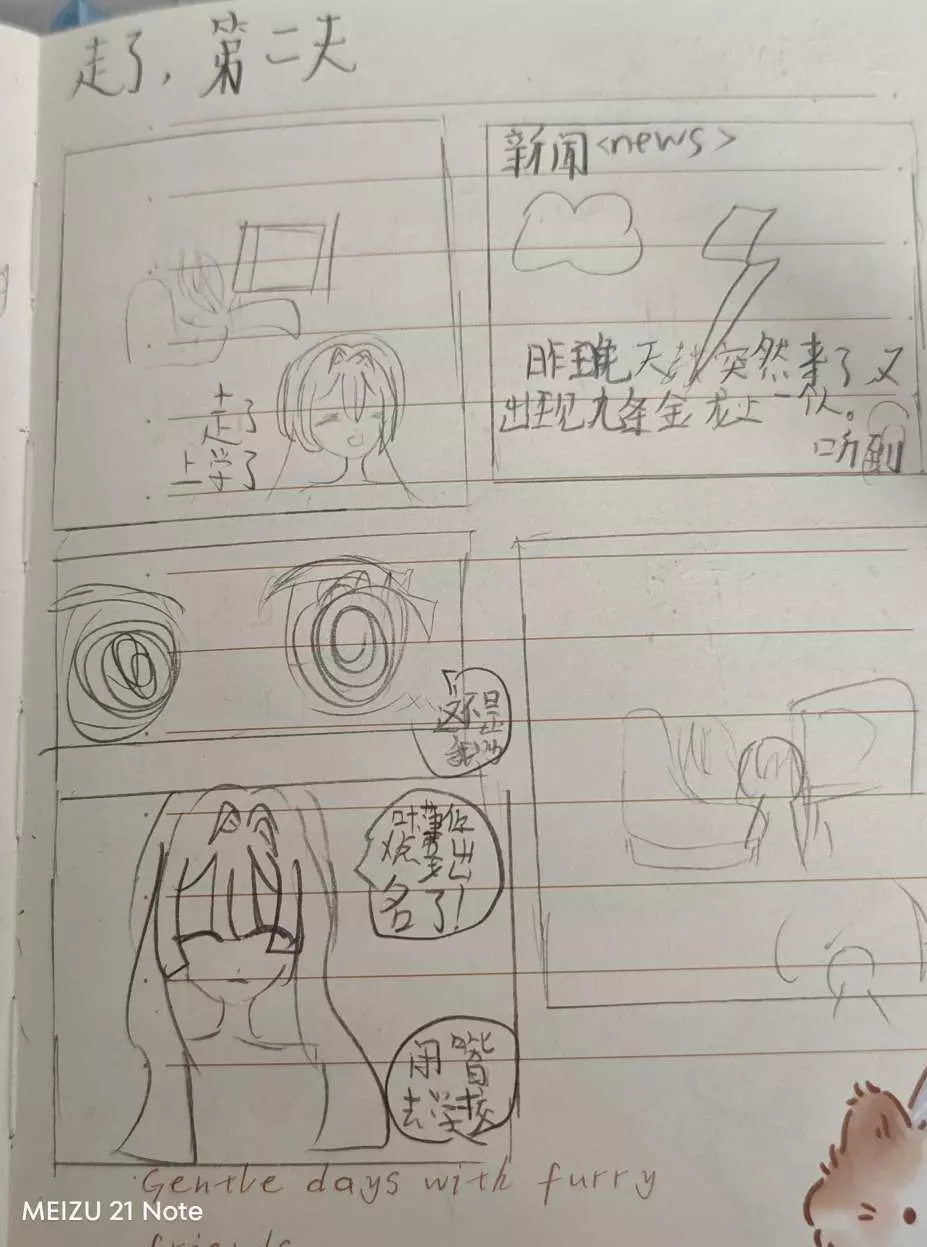 走了，第二天
新闻<news>
昨晚天劫突然来了又
出现九条金龙上一个人。
听到
走了
上学了
这不是
我吗
出
名了！
闭嘴
去学校
Gentle days with furry
friends
MEIZU 21 Note